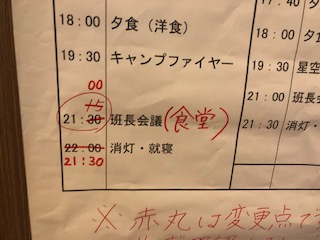 18:00 夕食（洋食）
19:30 キャンプファイヤー
00
15
21:30 班長会議(食堂)
22:00 消灯・就寝
21:30
17:40 夕
18:00 夕食
19:30 星空
21:00 班長会
21:30 消灯・
※赤丸は変更点で